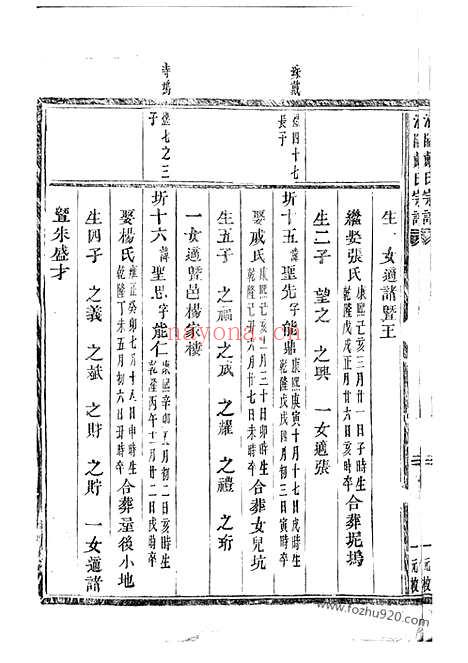 生一女適諸暨王
繼娶張氏康熙己亥三月廿一日子時生
乾隆戊戌正月廿六日亥時卒合葬坭塢
生二子 望之 之興 一女適張
塋四十七
長子
圻十五諱聖先字能鼎康熙庚寅十月十七日戌時生
乾隆戊戌四月初三日寅時卒
娶戚氏康熙己亥月三十日卯時生
乾隆己亥六月廿七日未時卒合葬女兒坑
生五子 之福 之成 之耀 之禮 之珩
一女適暨邑楊家樓
寺塢
塋七之三
子
圻十六諱聖思字能仁康熙辛卯月初二日亥時生
乾隆丙午十二月廿二日戌時卒
娶楊氏雍正癸卯七月十五日申時生
乾隆丁未五月初六日丑時卒合葬屋後小地
生四子 之義 之斌 之財 之貯 一女適諸
暨朱盛才
nayona.cn
www.fozhu920.com